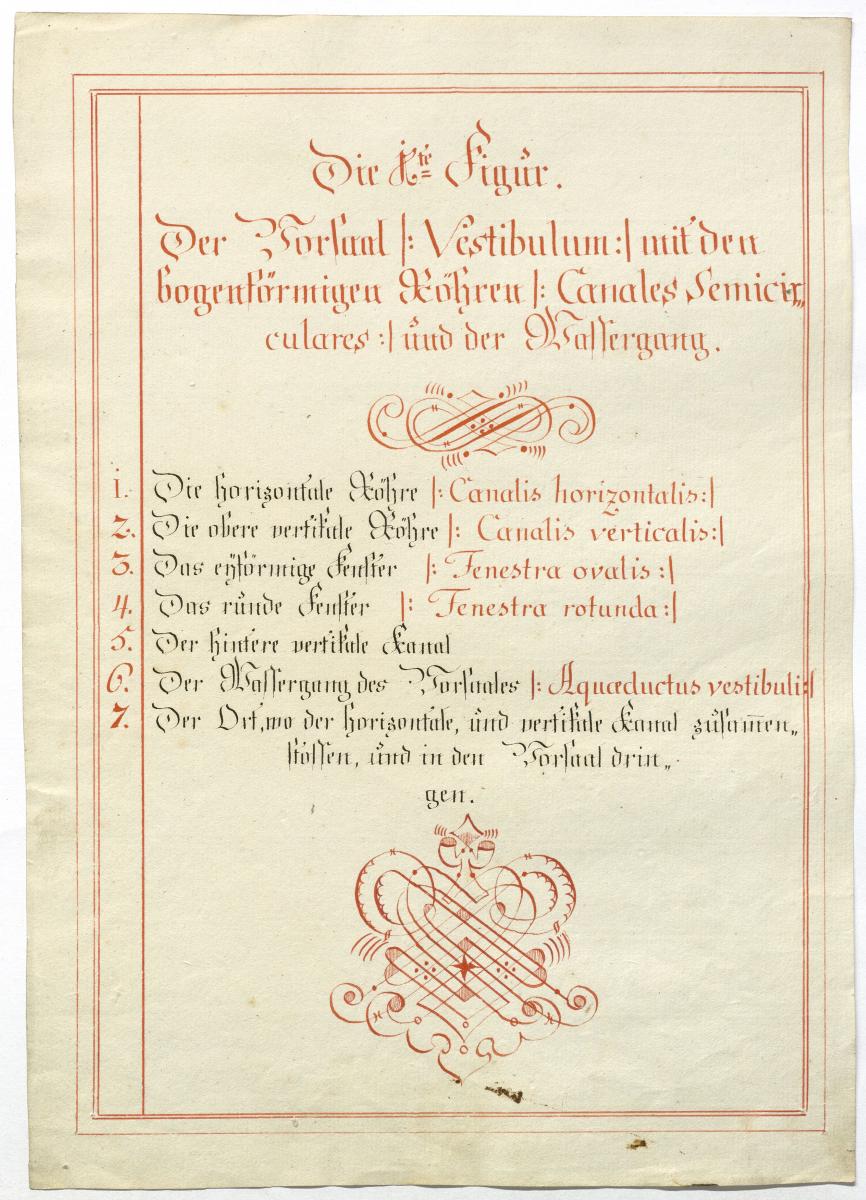 Die Kte Figůr.
Der Vorsaal |: Vestibulum :| mit den
bogenförmigen Röhren |: Canales Semicir„
culares :| ůnd der Wassergang.
1. Die horizontale Röhre |: Canalis horizontalis :|
2. Die obere vertikale Röhre |: Canalis verticalis :|
3. Das eÿförmige Fenster |: Fenestra ovalis :|
4. Das růnde Fenster |: Fenestra rotunda :|
5. Der hintere vertikale Kanal
6. Der Wassergang des Vorsaales |: Aquæductus vestibuli :|
7. Der Ort, wo der horizontale, ůnd vertikale Kanal zůsam̅en„
stossen, ůnd in den Vorsaal drin„
gen.